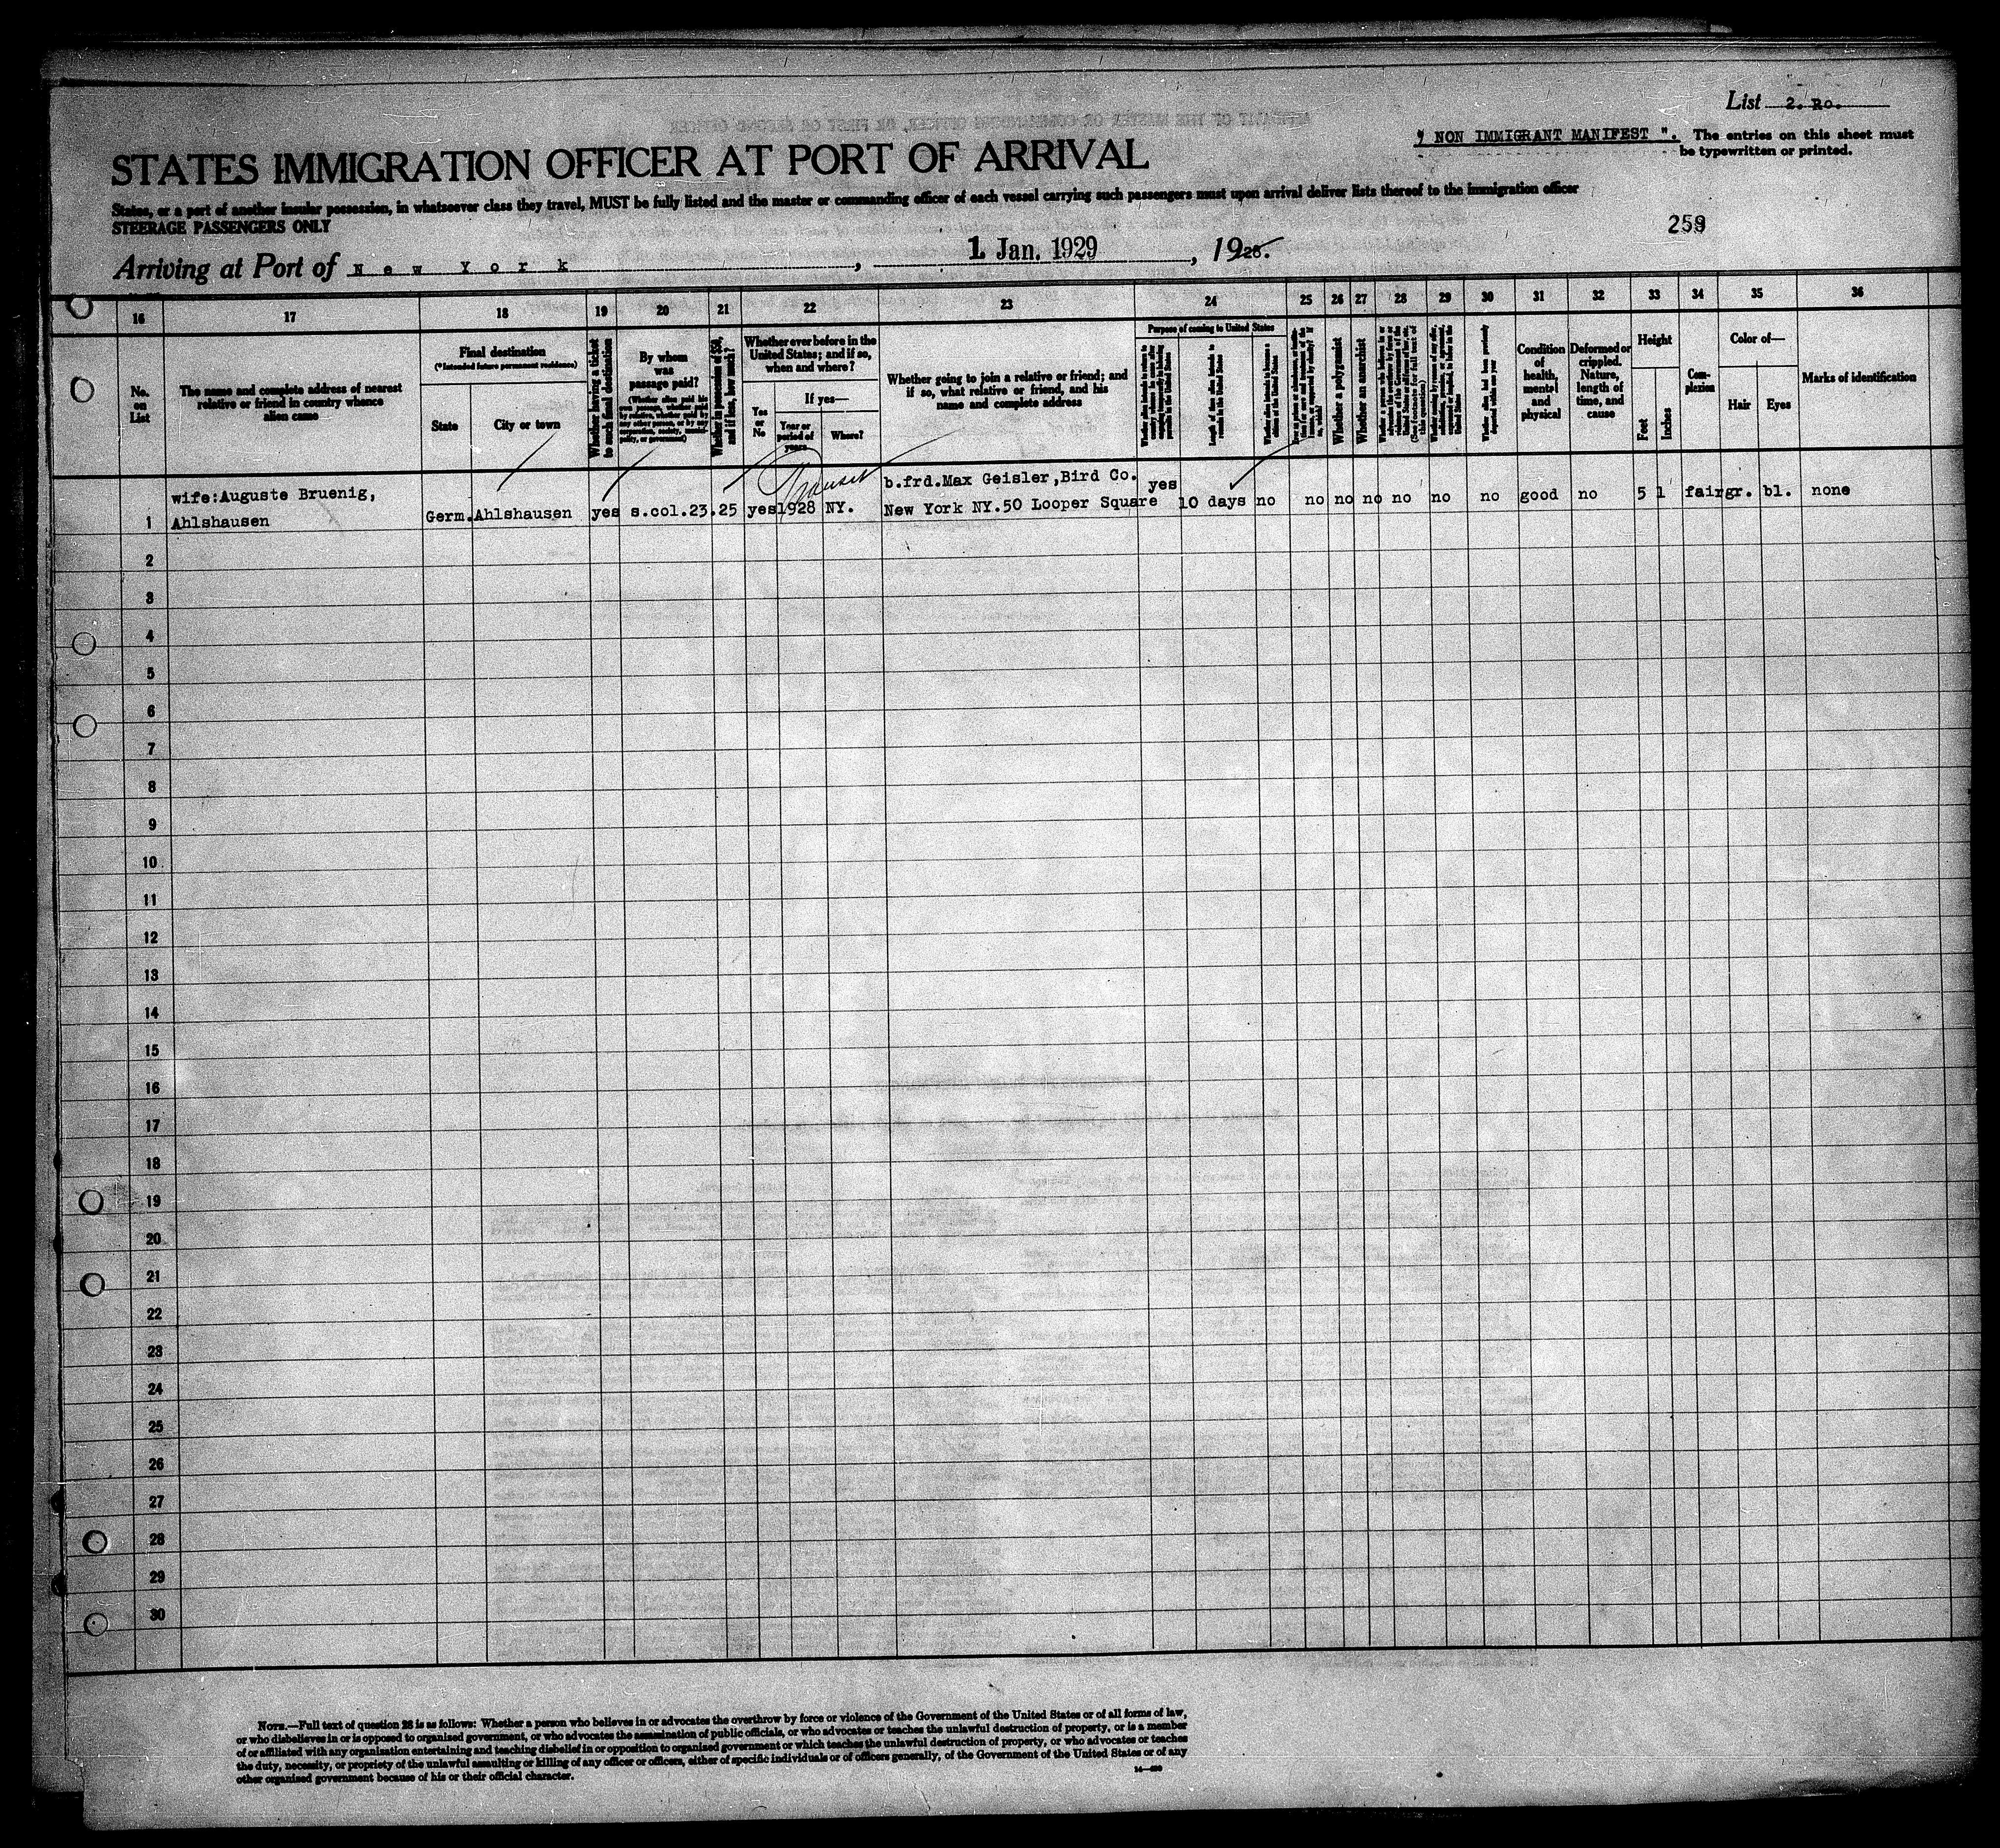 List 2. Ro.
" NON IMMIGRANT MANIFEST ". The entries on this sheet must
be typewritten or printed.
STATES IMMIGRATION OFFICER AT PORT OF ARRIVAL
States, or a port of another insular possession, in whatsoever class they travel, MUST be fully listed and the master or commanding officer of each vessel carrying such passengers must upon arrival deliver lists thereof to the immigration officer
STEERAGE PASSENGERS ONLY
259
Arriving at Port of New York, 1 Jan. 1929, 1928.
16 17 18 19 20 21 22 23 24 25 26 27 28 29 30 31 32 33 34 35 36
No.
on
List
The name and complete address of nearest
relative or friend in country whence
alien came
Final destination
(*Intended future permanent residence)
State
City or town
Whether having a ticket
to such final destination
By whom
was
passage paid?
(Whether alien paid his
own passage, whether paid
by any other person, or by any
corporation, society, munici-
pality, or government)
Whether in possession of $50,
and if less, how much?
Whether ever before in the
United States; and if so,
when and where?
Yes
or
No
If yes—
Year or
period of
years
Where?
Whether going to join a relative or friend; and
if so, what relative or friend, and his
name and complete address
Purpose of coming to United States
Length of time alien intends to
remain in the United States
Whether alien intends to become a
citizen of the United States
Whether a polygamist
Whether an anarchist
Whether alien had been previously
deported within one year
Condition
of
health,
mental
and
physical
Deformed or
crippled.
Nature,
length of
time, and
cause
Height
Feet
Inches
Com-
plexion
Color of—
Hair
Eyes
Marks of identification
1 wife:Auguste Bruenig,
Ahlshausen
Germ. Ahlshausen yes s.col.23.25 yes 1928 NY.
b.frd.Max Geisler,Bird Co.
New York NY.50 Looper Square
yes 10 days no no no no no no no good no 5 1 fair gr. bl. none
2
3
4
5
6
7
8
9
10
11
12
13
14
15
16
17
18
19
20
21
22
23
24
25
26
27
28
29
30
NOTE.—Full text of question 28 is as follows: Whether a person who believes in or advocates the overthrow by force or violence of the Government of the United States or of all forms of law,
or who disbelieves in or is opposed to organized government, or who advocates the assassination of public officials, or who advocates or teaches the unlawful destruction of property, or is a member
of or affiliated with any organization entertaining and teaching disbelief in or opposition to organized government or which teaches the unlawful destruction of property, or who advocates or teaches
the duty, necessity, or propriety of the unlawful assaulting or killing of any officer or officers, either of specific individuals or of officers generally, of the Government of the United States or of any
other organized government because of his or their official character.